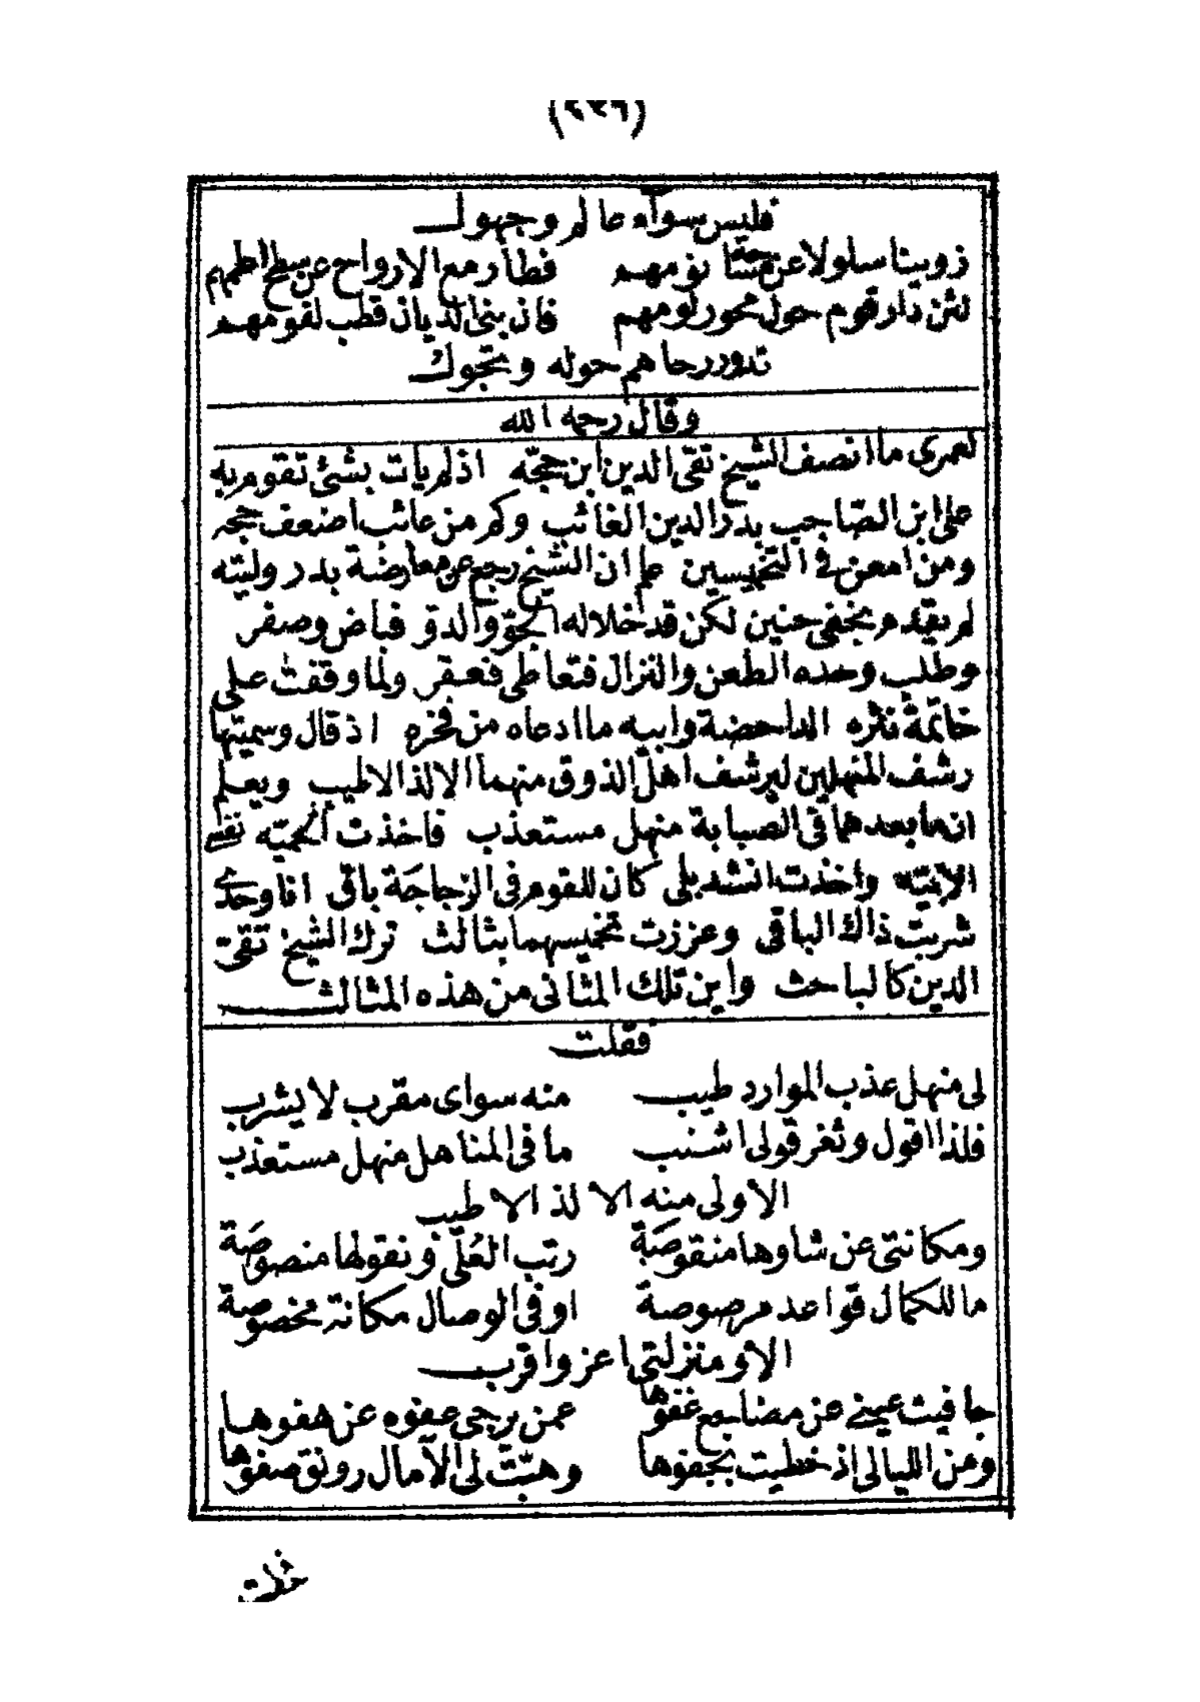 (٤٣٦)
فليس سوآء عالم وجهول
زوينا سلولا عن مساحة نؤمهم فطارمع الارواح عن سطح اطمهم
لئن دار قوم حول محور لومهم فان بنى الديان قطب لقومهم
تدور رحاهم حوله وتجول
وقال رحمه الله
لعمرى ما انصف الشيخ تقى الدين ابن حجّه اذ لم يات بشئ تقوم به
على ابن الصّاحب بدر الدين الغائب وكم من عائب اضعف حجه
ومن امعن فى التخميسين علم ان الشيخ رجع عن معارضة بدر وليته
لم يقدم بخفى حنين لكن قد خلا له الجوّ والدوّ فباض وصفر
وطلب وحده الطعن والنزال فتعاطى فعقر ولما وقفت على
خاتمة نثره الداحضة وابيه ما ادعاه من فخره اذ قال وسميتها
رشف المنهلين ليرشف اهل الذوق منهما الالذ الاطيب ويعلم
ان ما بعدهما فى الصبابة منهل مستعذب فاخذت الحميّه نفسى
الابيّه واخذت انشد بلى كان للقوم فى الزجاجة باقى انا وحدى
شربت ذاك الباقى وعززت تخميسهما بثالث ترك الشيخ تقىّ
الدين كالباحث واين تلك المثانى من هذه المثالث
فقلت
لى منهل عذب الموارد طيب منه سواى مقرب لا يشرب
فلذا اقول وثغر قولى اشنب ما فى المناهل منهل مستعذب
الاولى منه الالذ الاطيب
ومكانتى عن شاوها منقوصة رتب العُلّى ونقولها منصوصَة
ما للكمال قواعد مرصوصة او فى الوصال مكانة مخصوصة
الا ومنزلتى اعز واقرب
جافيت عينى عن مضاجع غفوها عمن يرجى عفوه عن هفوها
ومن الليالى اذ خطيت بجفوها وهبّت لى الآمال رونق صفوها
فظلت